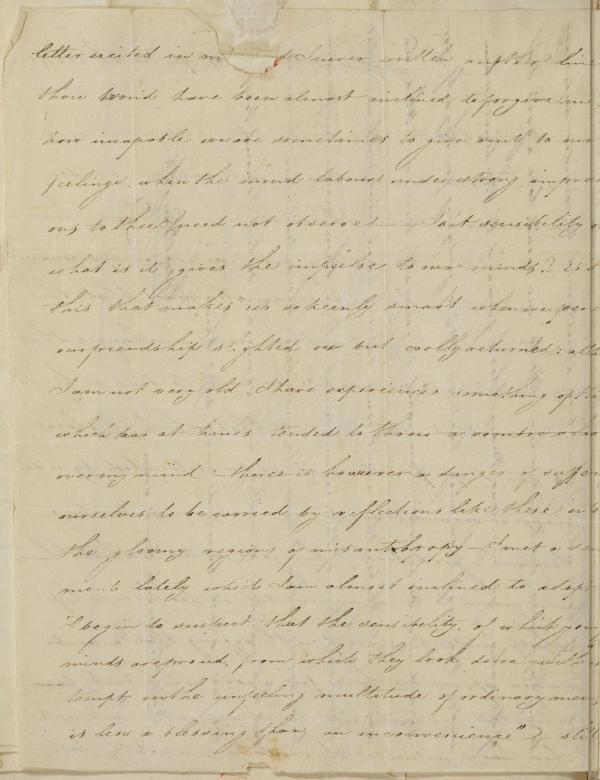 letter excited in m d I never written another line
thou would have been almost inclined to forgive me
how incapable we are sometimes to give vent to our
feelings when the mind labours under strong impres
ons to thee I need not observe — sensibility
what is it gives the impulse to our minds? is it
this that makes us so keenly smart when we per
our friendship slighted or but coolly returned: alth
I am not very old I have experienced something of th
which has at times tended to throw a sombre sha
over my mind – there is however a danger of suffer
ourselves to be carried by reflections like these into
the gloomy regions of misanthropy – I met a sen
ment lately which I am almost inclined to adopt
"I begin to suspect that the sensibility, of which youn
minds are proud, from which they look down with
tempt on the unfeeling multitude of ordinary men,
is less a blessing than an inconvenience" – still